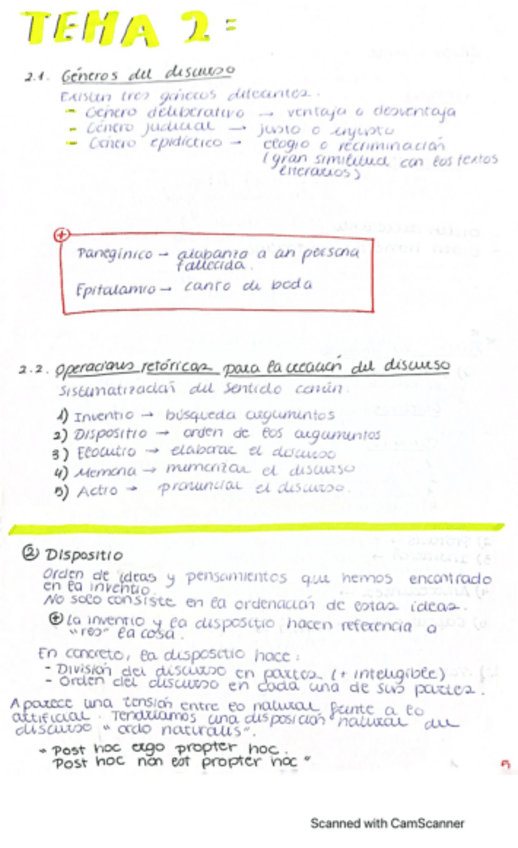 TEMA 2:
2.1. Géneros del discurso
Existen tres géneros diferentes.
- Género deliberativo → ventaja o desventaja
- Género judicial → justo o injusto
- Género epidíctico → elogio o recriminación
(gran similitud con los textos literarios)
⊕
Panegírico → alabanza a un persona
fallecida.
Epitalamio → canto de boda
2.2. Operaciones retóricas para la creación del discurso
Sistematización del sentido común.
1) Inventio → búsqueda argumentos
2) Dispositio → orden de los argumentos
3) Elocutio → elaborar el discurso
4) Memoria → memorizar el discurso
5) Actio → pronunciar el discurso.
② Dispositio
Orden de ideas y pensamientos que hemos encontrado
en la inventio.
No solo consiste en la ordenación de estas ideas.
⊕ la inventio y la dispositio hacen referencia a
"res" la cosa.
En concreto, la dispositio hace:
- División del discurso en partes (+ inteligible)
- Orden del discurso en cada una de sus partes.
Aparece una tensión entre lo natural frente a lo
artificial. Tendríamos una disposición natural du
discurso "ordo naturalis".
" Post hoc ergo propter hoc.
Post hoc non est propter hoc "
5
Scanned with CamScanner